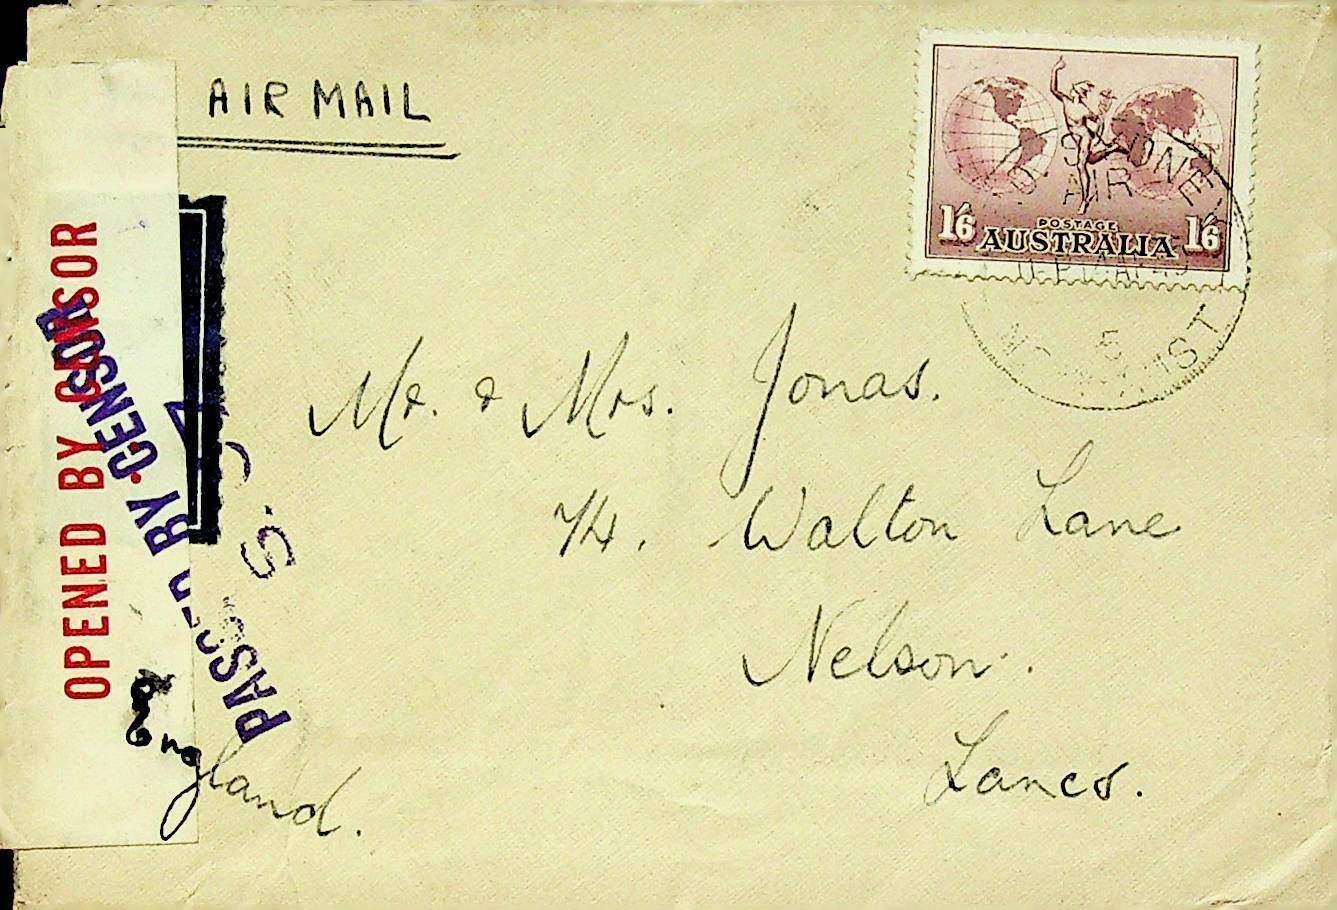 AIR MAIL
1/6 POSTAGE 1/6
AUSTRALIA
AIR
5
OPENED BY CENSOR
PASSED BY CENSOR
S.
Mr. & Mrs. Jonas.
74. Walton Lane
Nelson.
Lancs.
England.